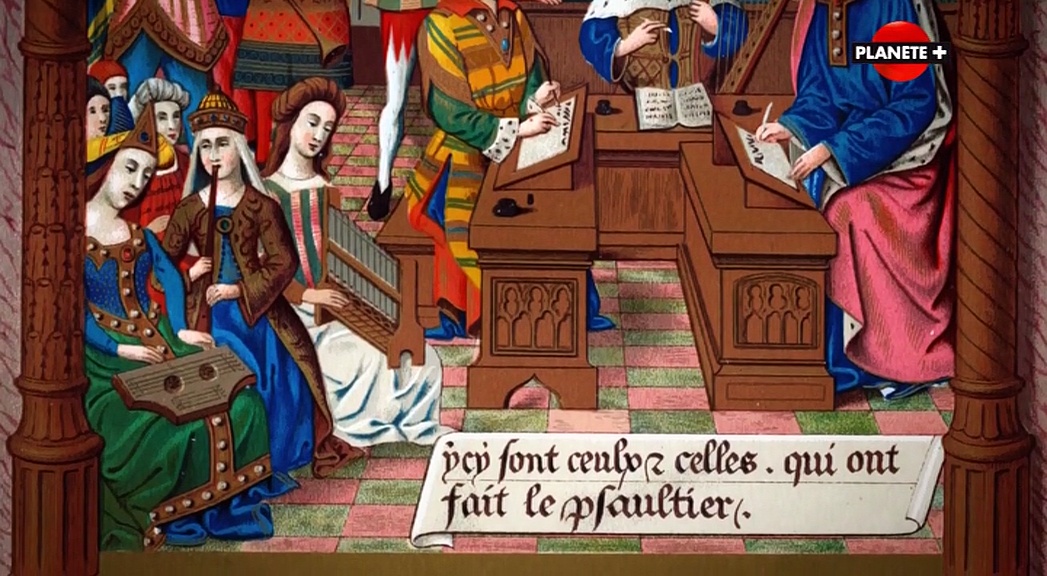 PLANETE +
ycy sont ceulx ⁊ celles . qui ont
fait le psaultier .